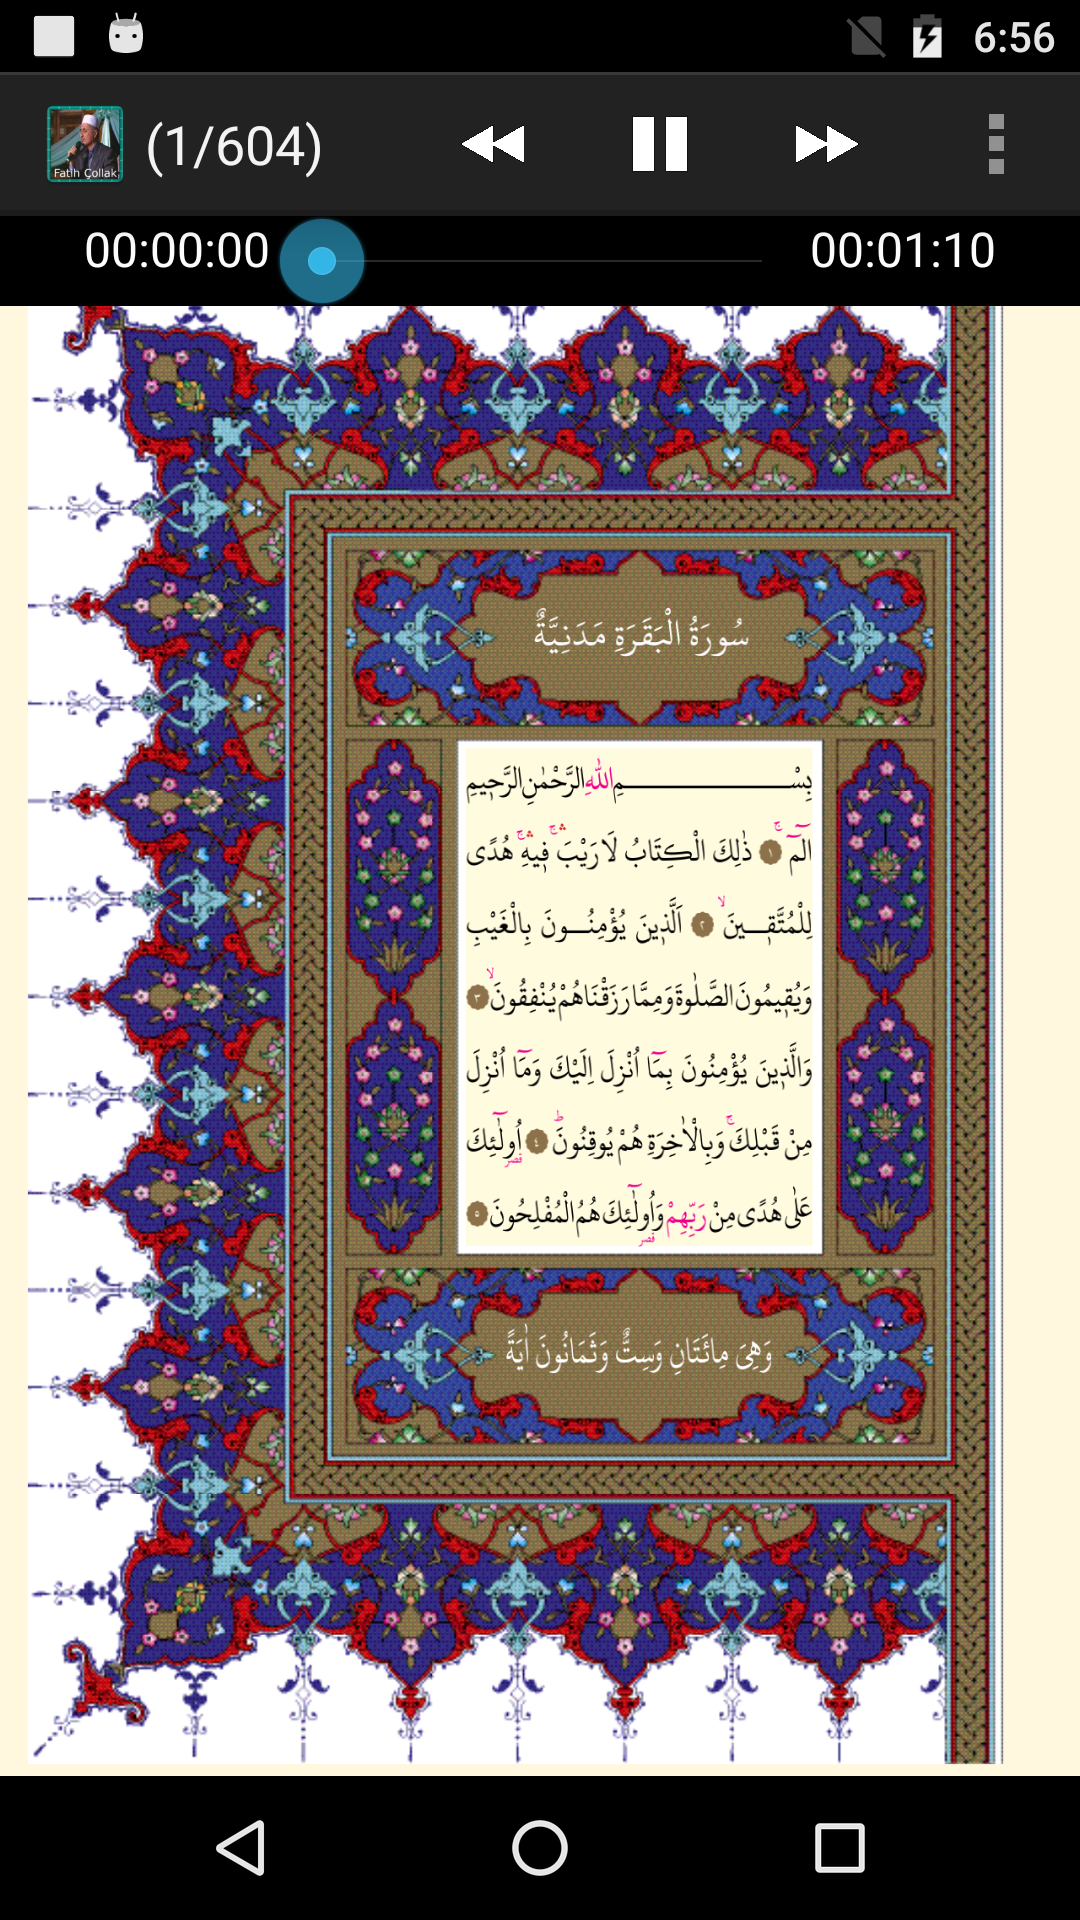 6:56
Fatih Çollak
(1/604)
00:00:00
00:01:10
سُورَةُ الْبَقَرَةِ مَدَنِيَّةٌ
بِسْمِ اللّٰهِ الرَّحْمٰنِ الرَّح۪يمِ
الٓمٓ ۚ ﴿١﴾ ذٰلِكَ الْكِتَابُ لَا رَيْبَۚۛ ف۪يهِۚۛ هُدًى
لِلْمُتَّق۪ينَۙ ﴿٢﴾ اَلَّذ۪ينَ يُؤْمِنُونَ بِالْغَيْبِ
وَيُق۪يمُونَ الصَّلٰوةَ وَمِمَّا رَزَقْنَاهُمْ يُنْفِقُونَۙ ﴿٣﴾
وَالَّذ۪ينَ يُؤْمِنُونَ بِمَٓا اُنْزِلَ اِلَيْكَ وَمَٓا اُنْزِلَ
مِنْ قَبْلِكَۚ وَبِالْاٰخِرَةِ هُمْ يُوقِنُونَۜ ﴿٤﴾ اُو۬لٰٓئِكَ
قصر
عَلٰى هُدًى مِنْ رَبِّهِمْ وَاُو۬لٰٓئِكَ هُمُ الْمُفْلِحُونَ ﴿٥﴾
قصر
وَهِيَ مِائَتَانِ وَسِتٌّ وَثَمَانُونَ اٰيَةً